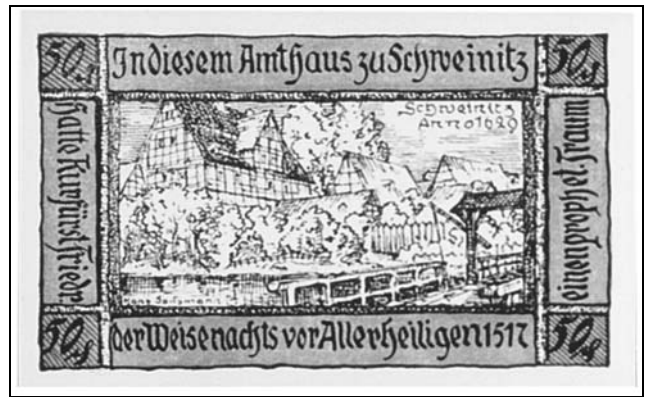 50₰ In diesem Amthaus zu Schweinitz 50₰
hatte Kurfürst Friedr.
Schweinitz
Anno 1629
einen prophet. Traum
Hans Sartzmann
50₰ der Weise nachts vor Allerheiligen 1517 50₰